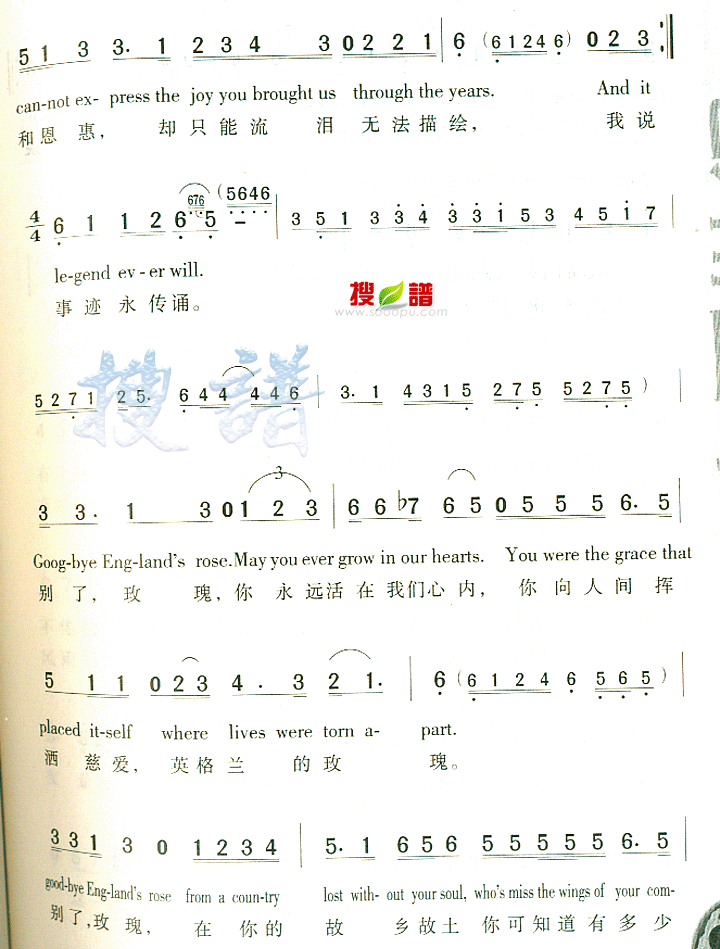 5 1 3 3. 1 2 3 4 3 0 2 2 1 6 ( 6 1 2 4 6 ) 0 2 3
can-not ex- press the joy you brought us through the years. And it
和恩 惠, 却只能流 泪 无法描绘, 我说
4/4 6 1 1 2 676 6. 5 – ( 5646 3 5 1 3 3 4 3 3 1 5 3 4 5 1 7
le-gend ev-er will.
事迹永传诵。
搜谱
www.sooopu.com
搜譜
5 2 7 1 2 5. 6 4 4 4 4 6 3. 1 4 3 1 5 2 7 5 5 2 7 5 )
3
3 3. 1 3 0 1 2 3 6 6 b7 6 5 0 5 5 5 6. 5
Goog-bye Eng-land's rose.May you ever grow in our hearts. You were the grace that
别了,玫 瑰,你 永远活在我们心内, 你向人间挥
5 1 1 0 2 3 4. 3 2 1. 6 ( 6 1 2 4 6 5 6 5 )
placed it-self where lives were torn a- part.
洒 慈爱, 英格兰 的玫 瑰。
3 3 1 3 0 1 2 3 4 5. 1 6 5 6 5 5 5 5 5 6. 5
good-bye Eng-land's rose from a coun-try lost with- out your soul, who's miss the wings of your com-
别了,玫瑰, 在你的 故 乡故土你可知道有多少